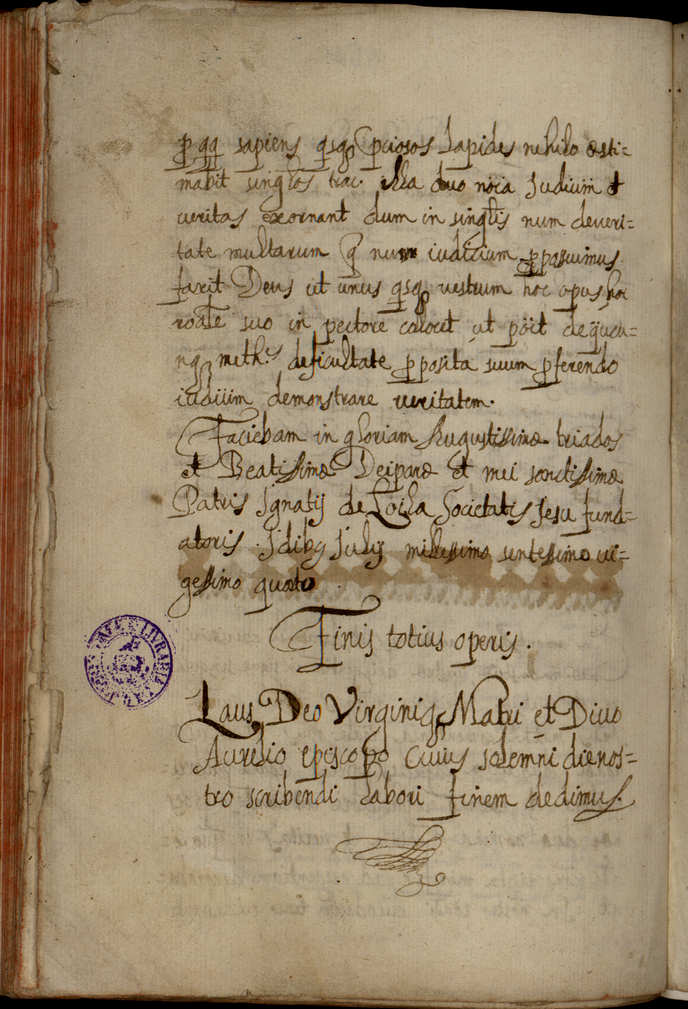 sapiens preciosos lapides nihilo æsti=
mabit singulos trac. illa duo noīa Judiciū et
veritas exornant dum in singulis num deveri=
tate multarum num iudicium pposuimus
faxit Deus ut unus vestrum hoc opus
suo in pectore colocet ut
meth. deficultate pposita suum pferendo
iudicium demonstrare veritatem.
Faciebam in gloriam Augustissimæ triados
et Beatissimæ Deiparæ et mei sanctissimæ
Patris Ignatij de Loila Societatis Jesu fund=
atoris Idibꝫ Julij millessimo sentessimo vi=
gessimo quarto
Finis totius operis.
Laus Deo Virginiqꝫ Matri et Divo
Aurelio episcopo cuius solemni die nos=
tro scribendi labori finem dedimus.